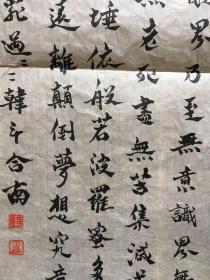 界乃至無意識界無
無老死盡無苦集滅
埵依般若波羅蜜多
遠離顛倒夢想究竟
過韓斗合南